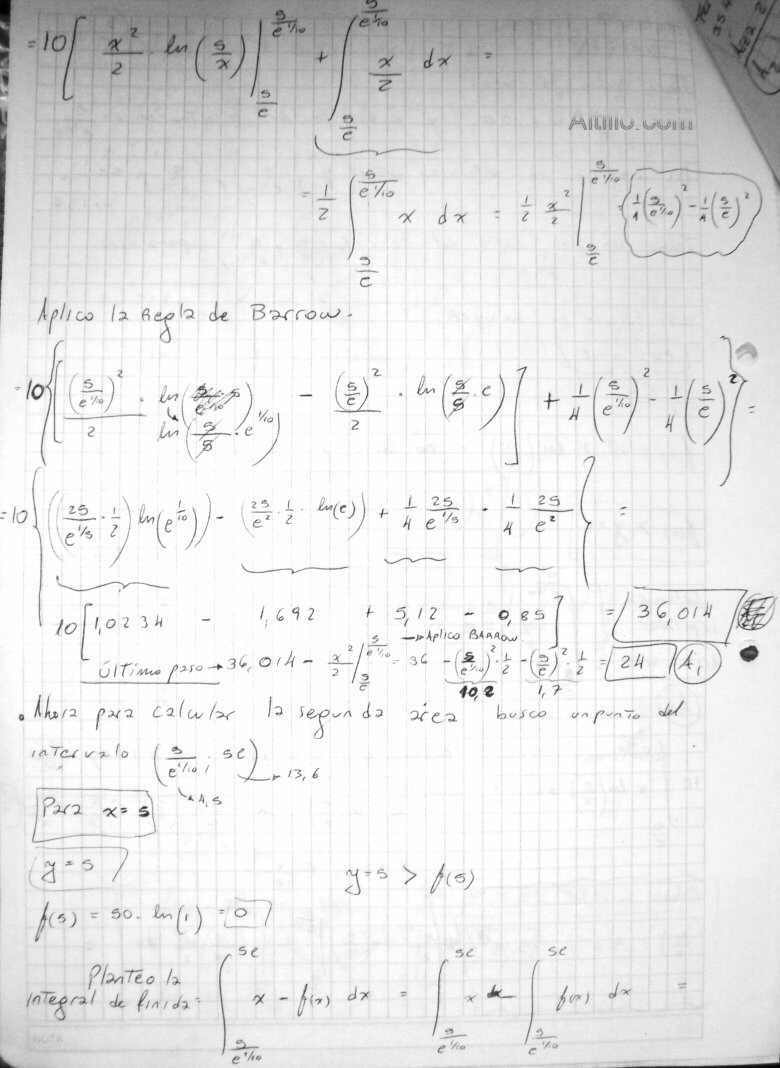 = 10 [ x²/2 · ln(5/x) |_{5/e}^{5/e^{1/10}} + ∫_{5/e}^{5/e^{1/10}} x/2 dx =
Altillo.com
= 1/2 ∫_{5/e}^{5/e^{1/10}} x dx = 1/2 x²/2 |_{5/e}^{5/e^{1/10}} = 1/4 (5/e^{1/10})² - 1/4 (5/e)²
Aplico la Regla de Barrow.
= 10 { [ (5/e^{1/10})²/2 · ln(5/5 · e^{1/10}) - (5/e)²/2 · ln(5/5 · e) ] + 1/4 (5/e^{1/10})² - 1/4 (5/e)² } =
= 10 { ((25/e^{1/5} · 1/2) ln(e^{1/10})) - (25/e² · 1/2 · ln(e)) + 1/4 25/e^{1/5} - 1/4 25/e² } =
10 [ 1,0234 - 1,692 + 5,12 - 0,85 ] = 36,014
→ Aplico BARROW
Último paso → 36,014 - x²/2 |_{5/e}^{5/e^{1/10}} = 36 - (5/e^{1/10})² · 1/2 - (5/e)² · 1/2 = 24 A₁
10,2 1,7
• Ahora para calcular la segunda área busco un punto del
intervalo (5/e^{1/10} ; 5e) → 13,6
→ 4,5
Para x = 5
y = 5 y = 5 > f(5)
f(5) = 50 · ln(1) = 0
Planteo la
integral definida = ∫_{5/e^{1/10}}^{5e} x - f(x) dx = ∫_{5/e^{1/10}}^{5e} x - ∫_{5/e^{1/10}}^{5e} f(x) dx =